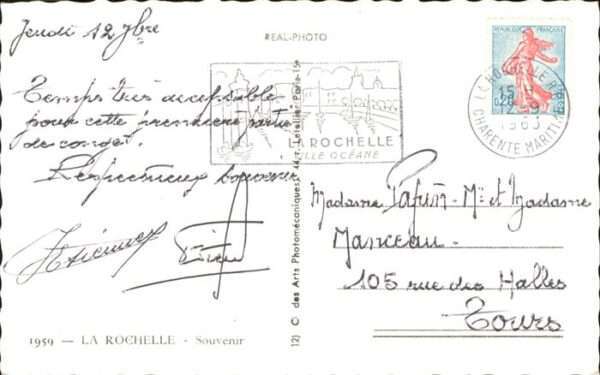 Jeudi 12 7bre
Temps très acceptable
pour cette première partie
de congé.
Respectueux souvenir
1959 — LA ROCHELLE - Souvenir
REAL-PHOTO
12) © des Arts Photomécaniques 44, r. Letellier Paris-15e
LA ROCHELLE
VILLE OCÉANE
RÉPUBLIQUE FRANÇAISE
0,20
LA ROCHELLE
15 H
12-9
1963
CHARENTE MARITIME
Madame Papin - Mr et Madame
Manceau -
105 rue des Halles
Tours